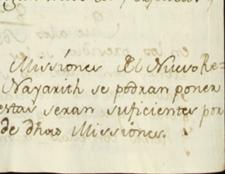 Missiónes del Nuevo Re=
Nayarith se podran poner
estas seran suficientes por
de dhas Missiónes.